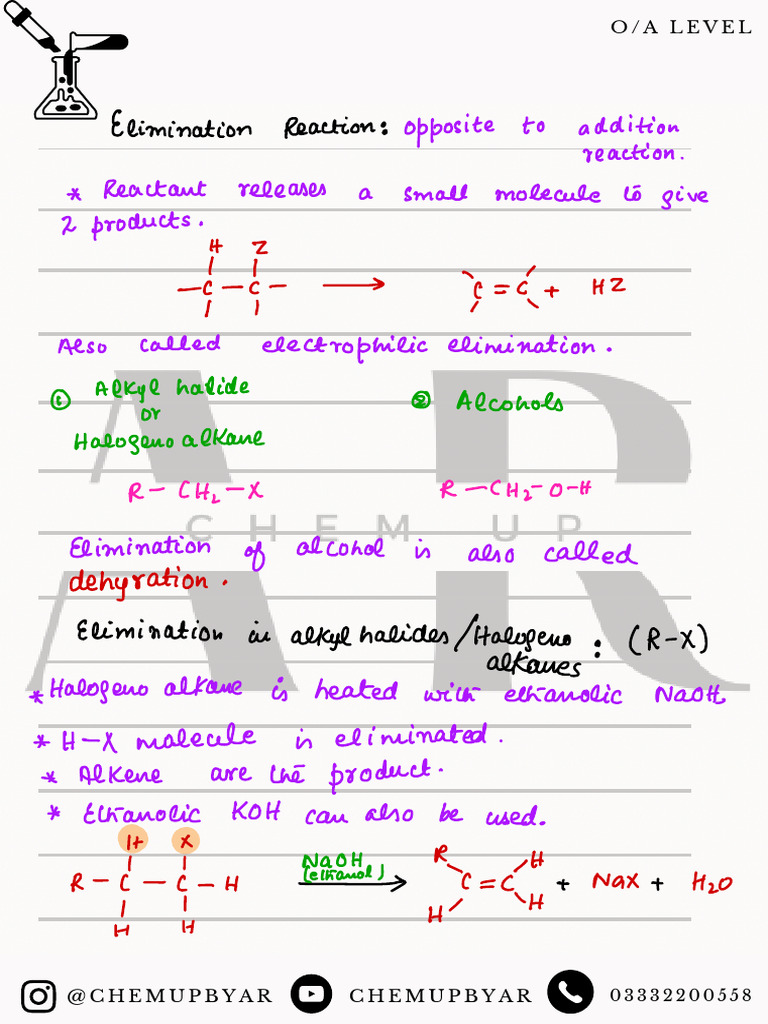 O/A LEVEL
Elimination Reaction: opposite to addition
reaction.
* Reactant releases a small molecule to give
2 products.
H Z
— C — C — → C = C + HZ
Also called electrophilic elimination.
① Alkyl halide
or
Halogeno alkane
② Alcohols
R — CH₂ — X
R — CH₂ — O — H
AR
CHEM UP
Elimination of alcohol is also called
dehyration.
Elimination in alkyl halides/Halogeno
alkanes : (R-X)
* Halogeno alkane is heated with ethanolic NaOH
* H-X malecule is eliminated.
* Alkene are the product.
* Ethanolic KOH can also be used.
H X
R — C — C — H
H H
NaOH
(ethanol)
→
R H
C = C + NaX + H₂O
H H
@CHEMUPBYAR CHEMUPBYAR 03332200558